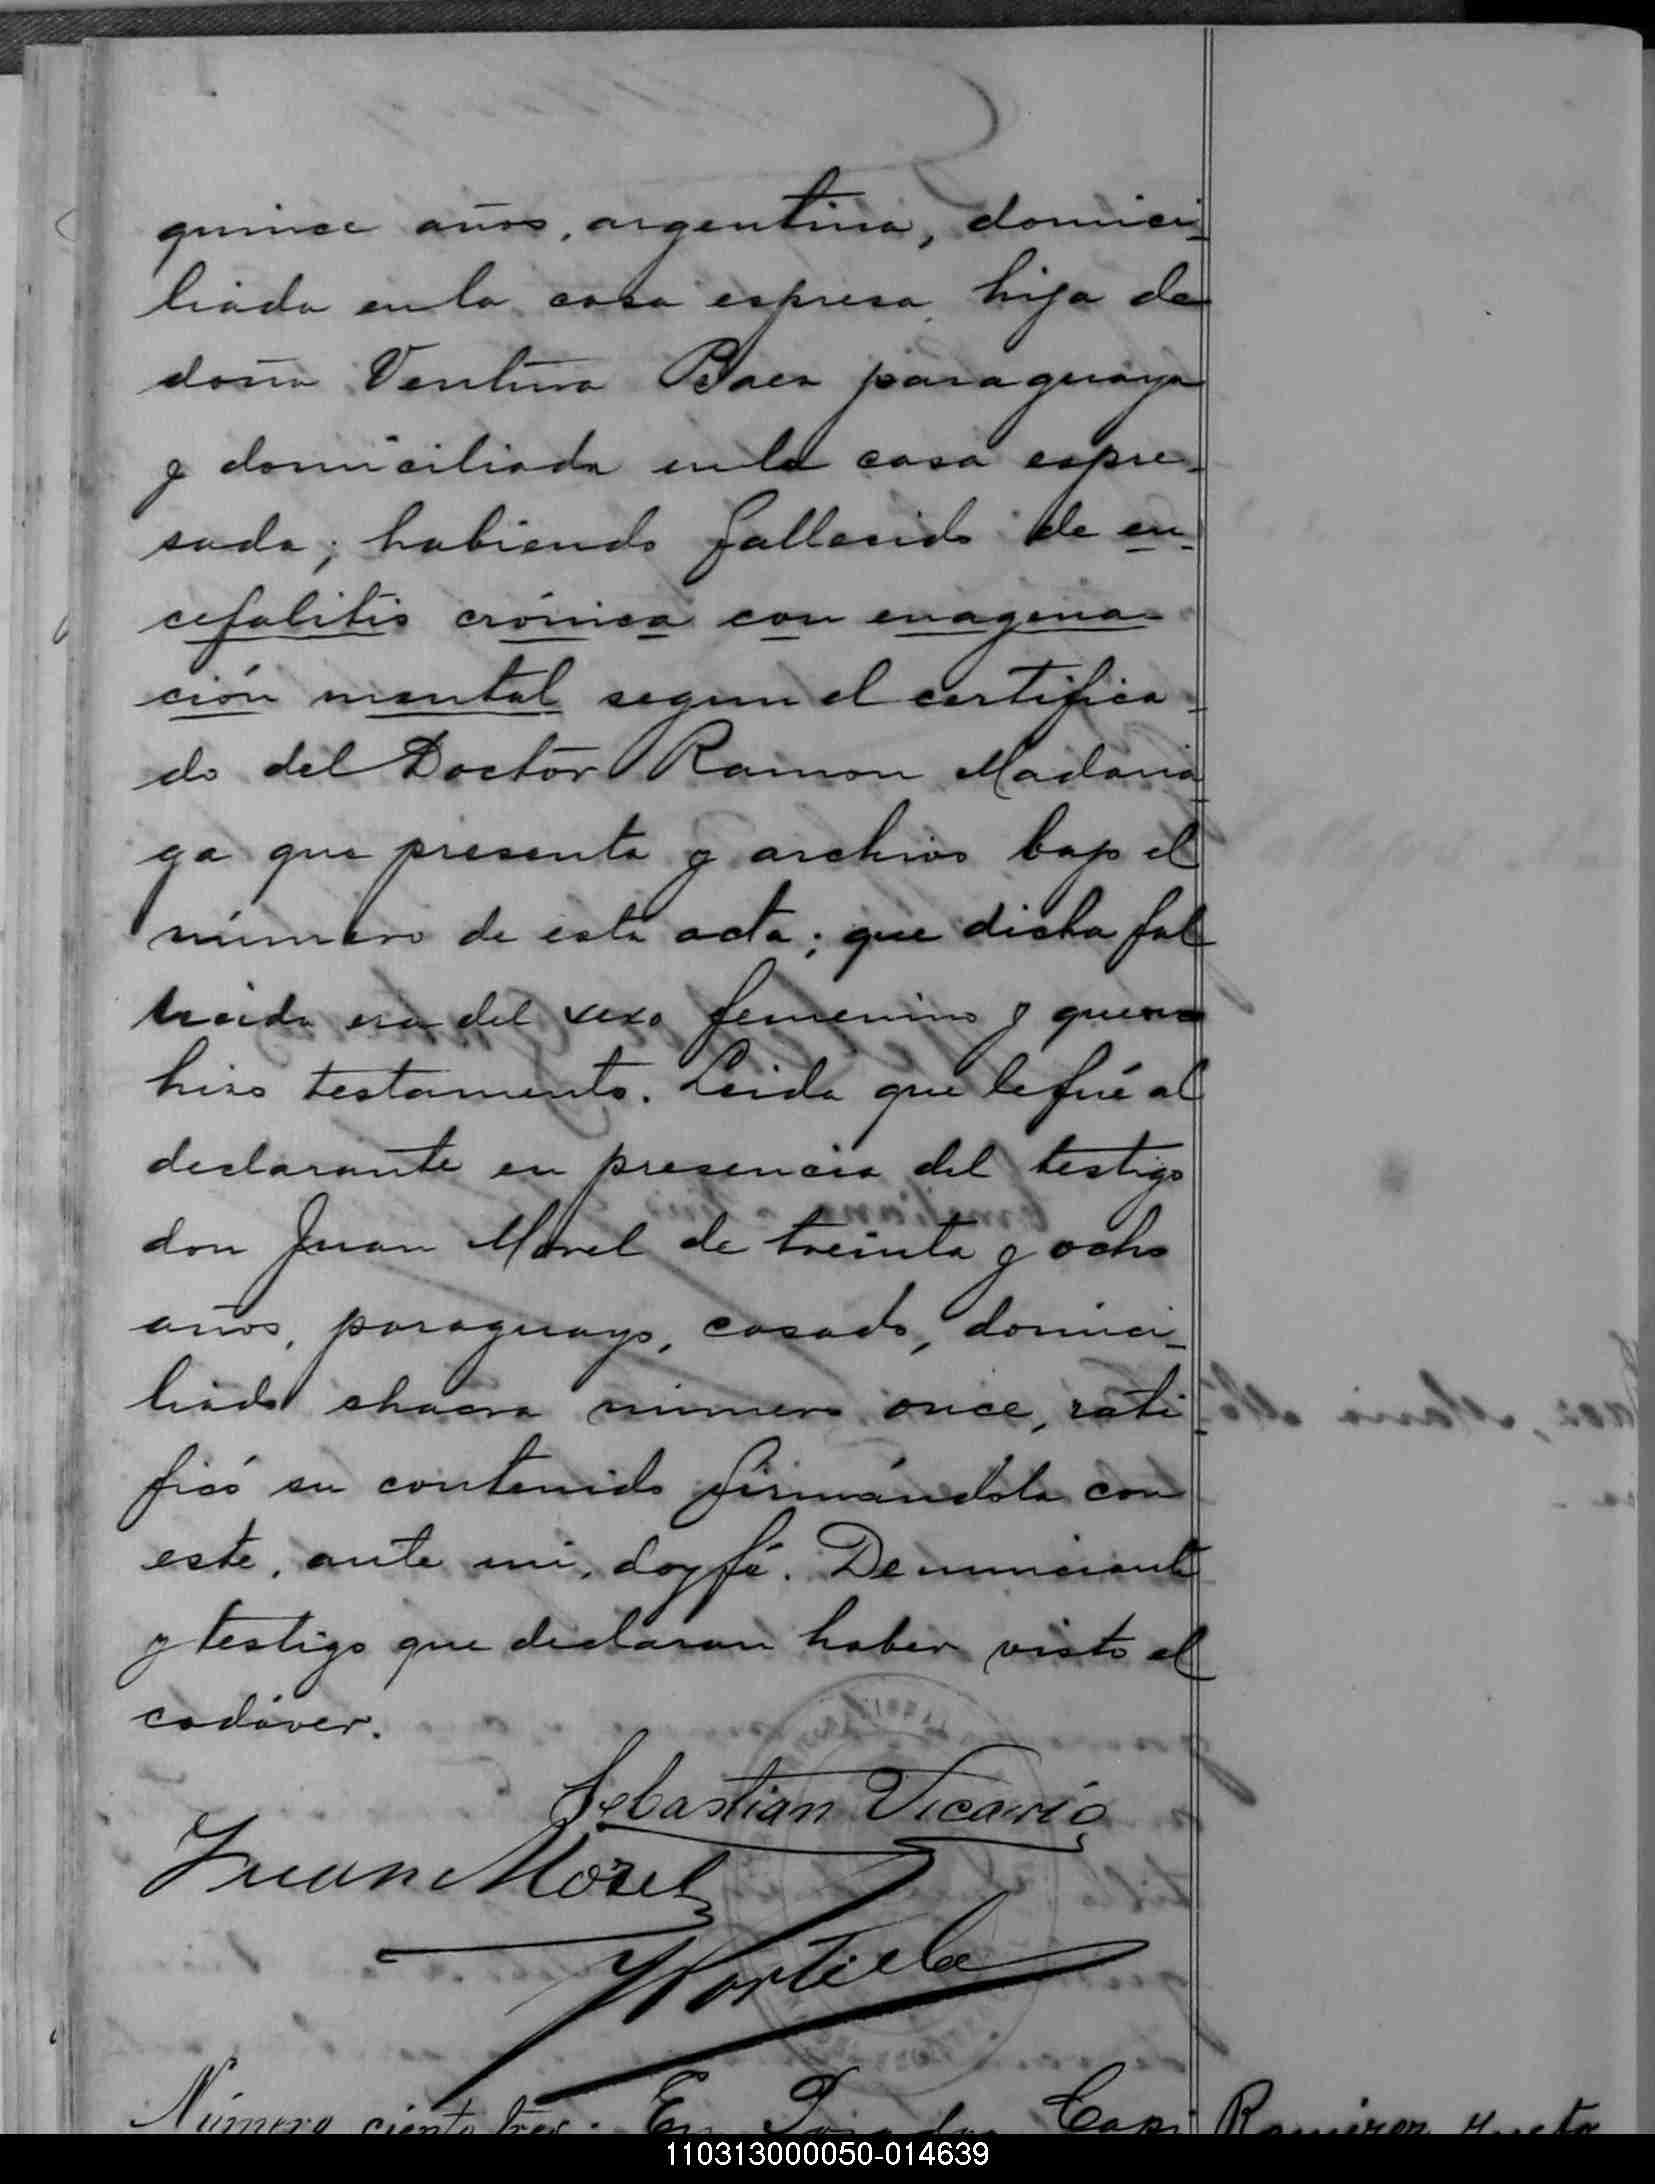 quince años, argentina, domici-
liada en la casa espresa, hija de
doña Ventura Baez paraguaya
y domiciliada en la casa espre-
sada; habiendo fallecido de en-
cefalitis crónica con enagena-
ción mental segun el certifica-
do del Doctor Ramon Madaria
ga que presenta y archivo bajo el
número de esta acta; que dicha fal
lecida era del sexo femenino y que no
hizo testamento. Leida que le fué al
declarante en presencia del testigo
don Juan Morel de treinta y ocho
años, paraguayo, casado, domici-
liado chacra número once, rati-
ficó su contenido firmándola con
este, ante mi, doy fé. Denunciante
y testigo que declaran haber visto el
cadáver.
Sebastian Vicario
Juan Morel
Número ciento tres: En Posadas Capi
Ramirez
110313000050-014639